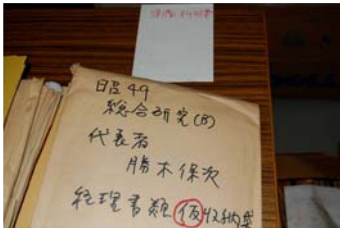 昭49
総合研究(B)
代表者
勝木保次
経理書類仮収納袋